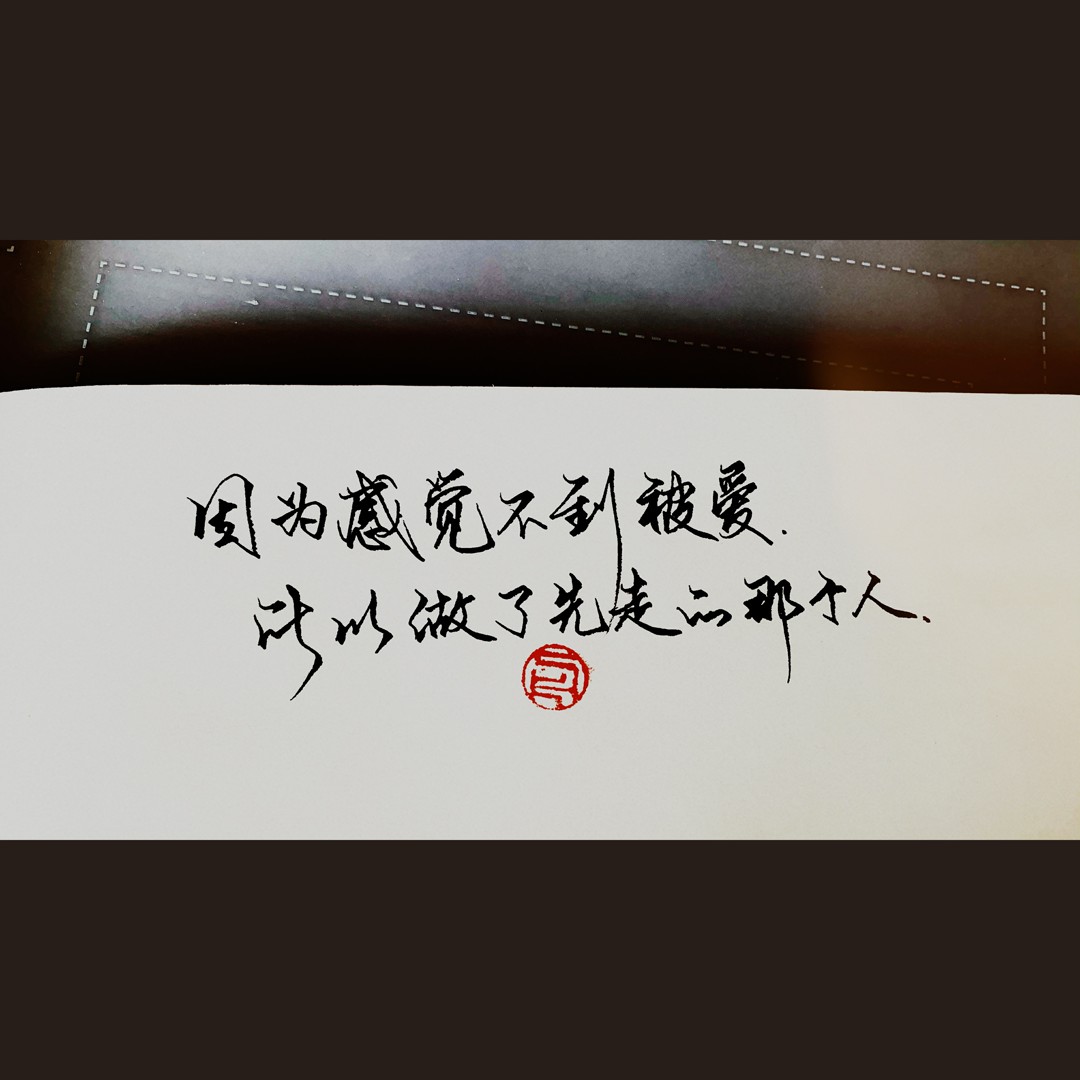 因为感觉不到被爱.
所以做了先走的那个人.